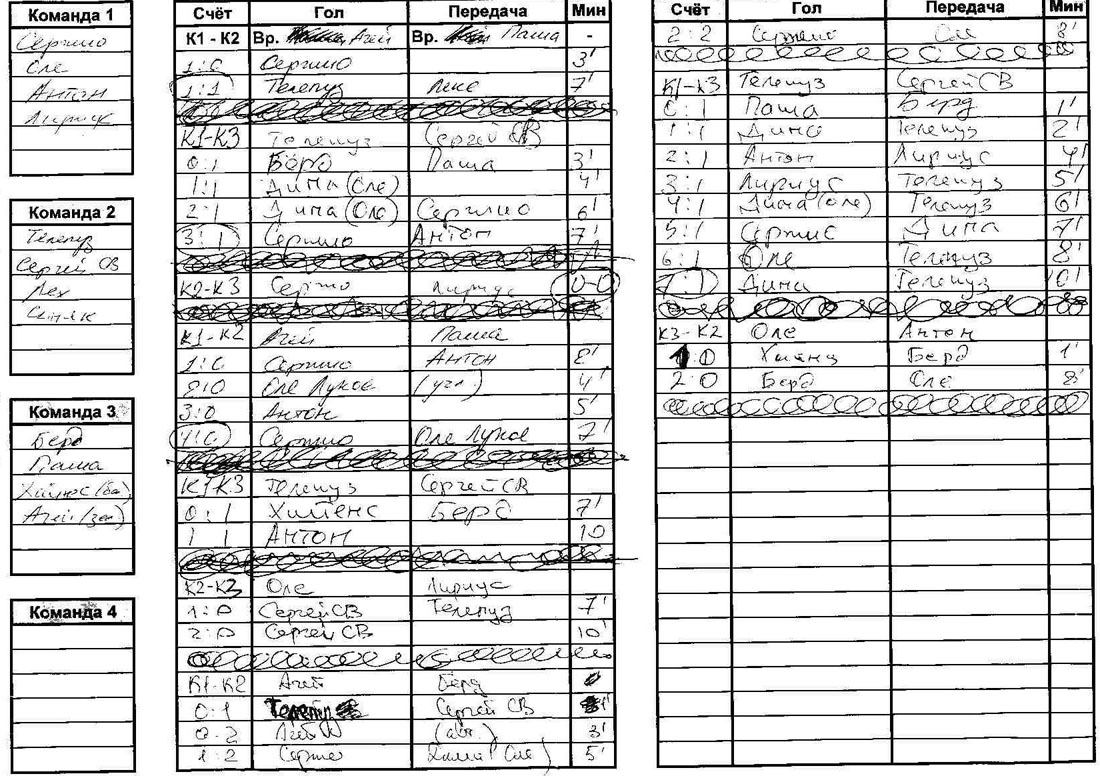 Команда 1
Сержио
Оле
Антон
Лириск
Команда 2
Телепуз
Сергей СВ
Лех
Команда 3
Берд
Паша
Команда 4
Счёт Гол Передача Мин
К1 - К2 Вр. Агей Вр. Паша -
1:0 Сержио 3'
1:1 Телепуз Лехе 7'
К1-К3 Телепуз Сергей СВ
0:1 Берд Паша 3'
1:1 Дима (Оле) 4'
2:1 Дима (Оле) Сержио 6'
3:1 Сержио Антон 7'
К2-К3 Сержио Лириус 0-0
К1-К2 Агей Паша
1:0 Сержио Антон 2'
2:0 Оле Лукое (угл) 4'
3:0 Антон 5'
4:0 Сержио Оле Лукое 7'
К1-К3 Телепуз Сергей СВ
0:1 Хименс Берд 7'
1 1 Антон 10
К2-К3 Оле Лириус
1:0 Сергей СВ Телепуз 7'
2:0 Сергей СВ 10'
К1-К2 Агей Берд
0:1 Телепуз Сергей СВ 1'
0:2 Агей (авт.) 3'
1:2 Сержио Дима (Оле) 5'
Счёт Гол Передача Мин
2:2 Сержио Оле 8'
К1-К3 Телепуз Сергей СВ
0:1 Паша Берд 1'
1:1 Дима Телепуз 2'
2:1 Антон Лириус 4'
3:1 Лириус Телепуз 5'
4:1 Дима (Оле) Телепуз 6'
5:1 Сержио Дима 7'
6:1 Оле Телепуз 8'
7:1 Дима Телепуз 10'
К3-К2 Оле Антон
1:0 Хименс Берд 1'
2:0 Берд Оле 8'